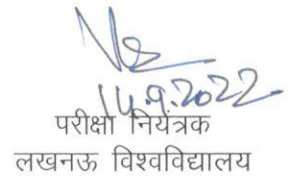 14.9.2022
परीक्षा नियंत्रक
लखनऊ विश्वविद्यालय